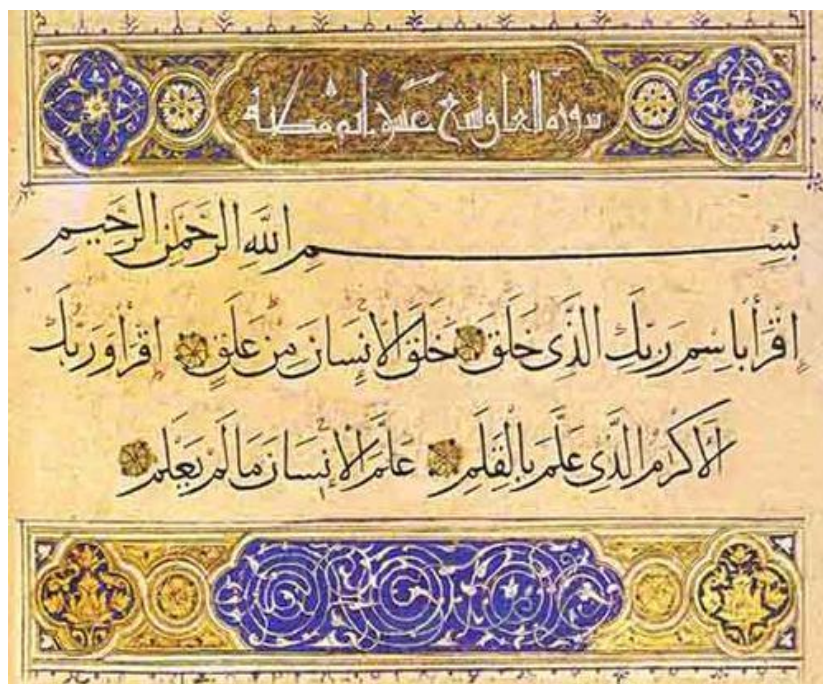 سورة العلق تسع عشر اية مكية
بِسْمِ اللَّهِ الرَّحْمَنِ الرَّحِيمِ
إِقْرَأْ بِاسْمِ رَبِّكَ الَّذِى خَلَقَ خَلَقَ الْإِنسَانَ مِنْ عَلَقٍ إِقْرَأْ وَرَبُّكَ
الْأَكْرَمُ الَّذِى عَلَّمَ بِالْقَلَمِ عَلَّمَ الْإِنسَانَ مَا لَمْ يَعْلَمْ